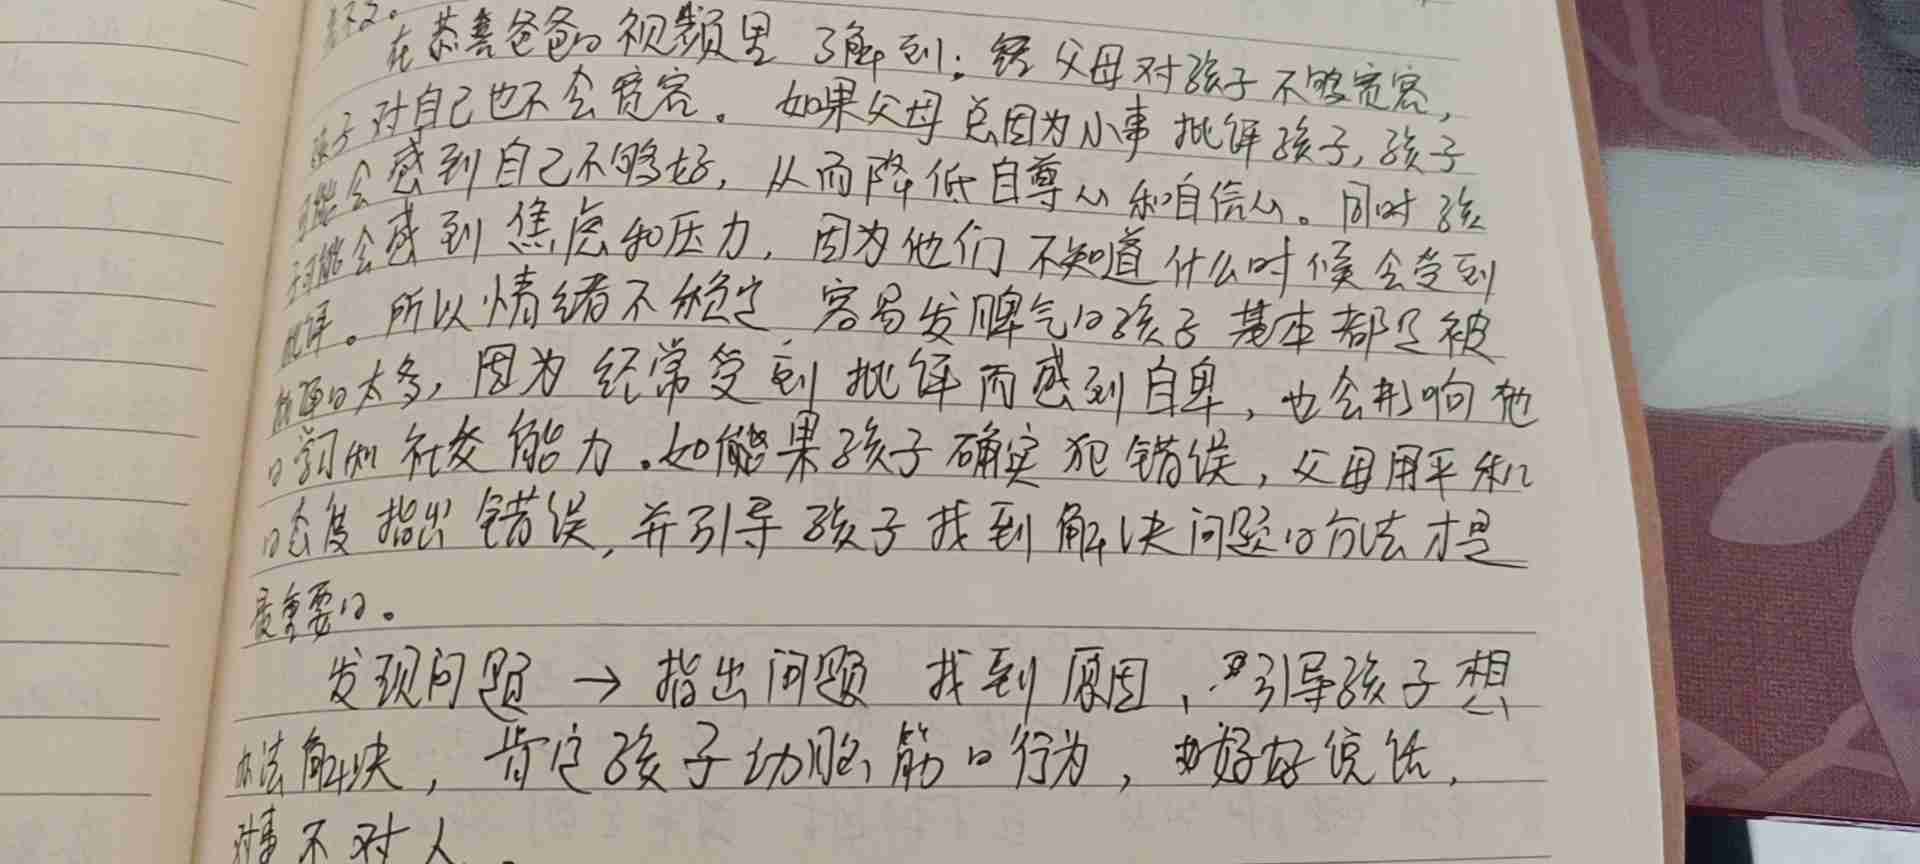 在恭喜爸爸的视频里 了解到：父母对孩子不够宽容，
孩子对自己也不会宽容。如果父母总因为小事批评孩子，孩子
可能会感到自己不够好，从而降低自尊心和自信心。同时孩
子可能会感到焦虑和压力，因为他们不知道什么时候会受到
批评。所以情绪不稳定 容易发脾气的孩子基本都是被
的太多，因为经常受到批评而感到自卑，也会影响他
的学习和社交能力。如果孩子确实犯错误，父母用平和
的态度指出错误，并引导孩子找到解决问题的方法才是
最重要的。
发现问题 → 指出问题 找到原因，引导孩子想
办法解决，肯定孩子动脑筋的行为，好好说话，
对事不对人。